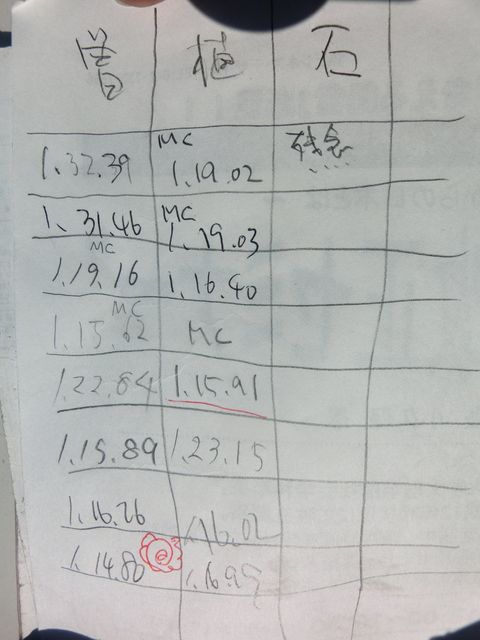 曽 植 石
MC
1.32.39 1.19.02 残念...
MC
1.31.46 1.19.03
MC
1.19.16 1.16.40
MC
1.15.62 MC
1.22.84 1.15.91
1.15.89 1.23.15
1.16.26 1.16.02
1.14.80 1.16.95